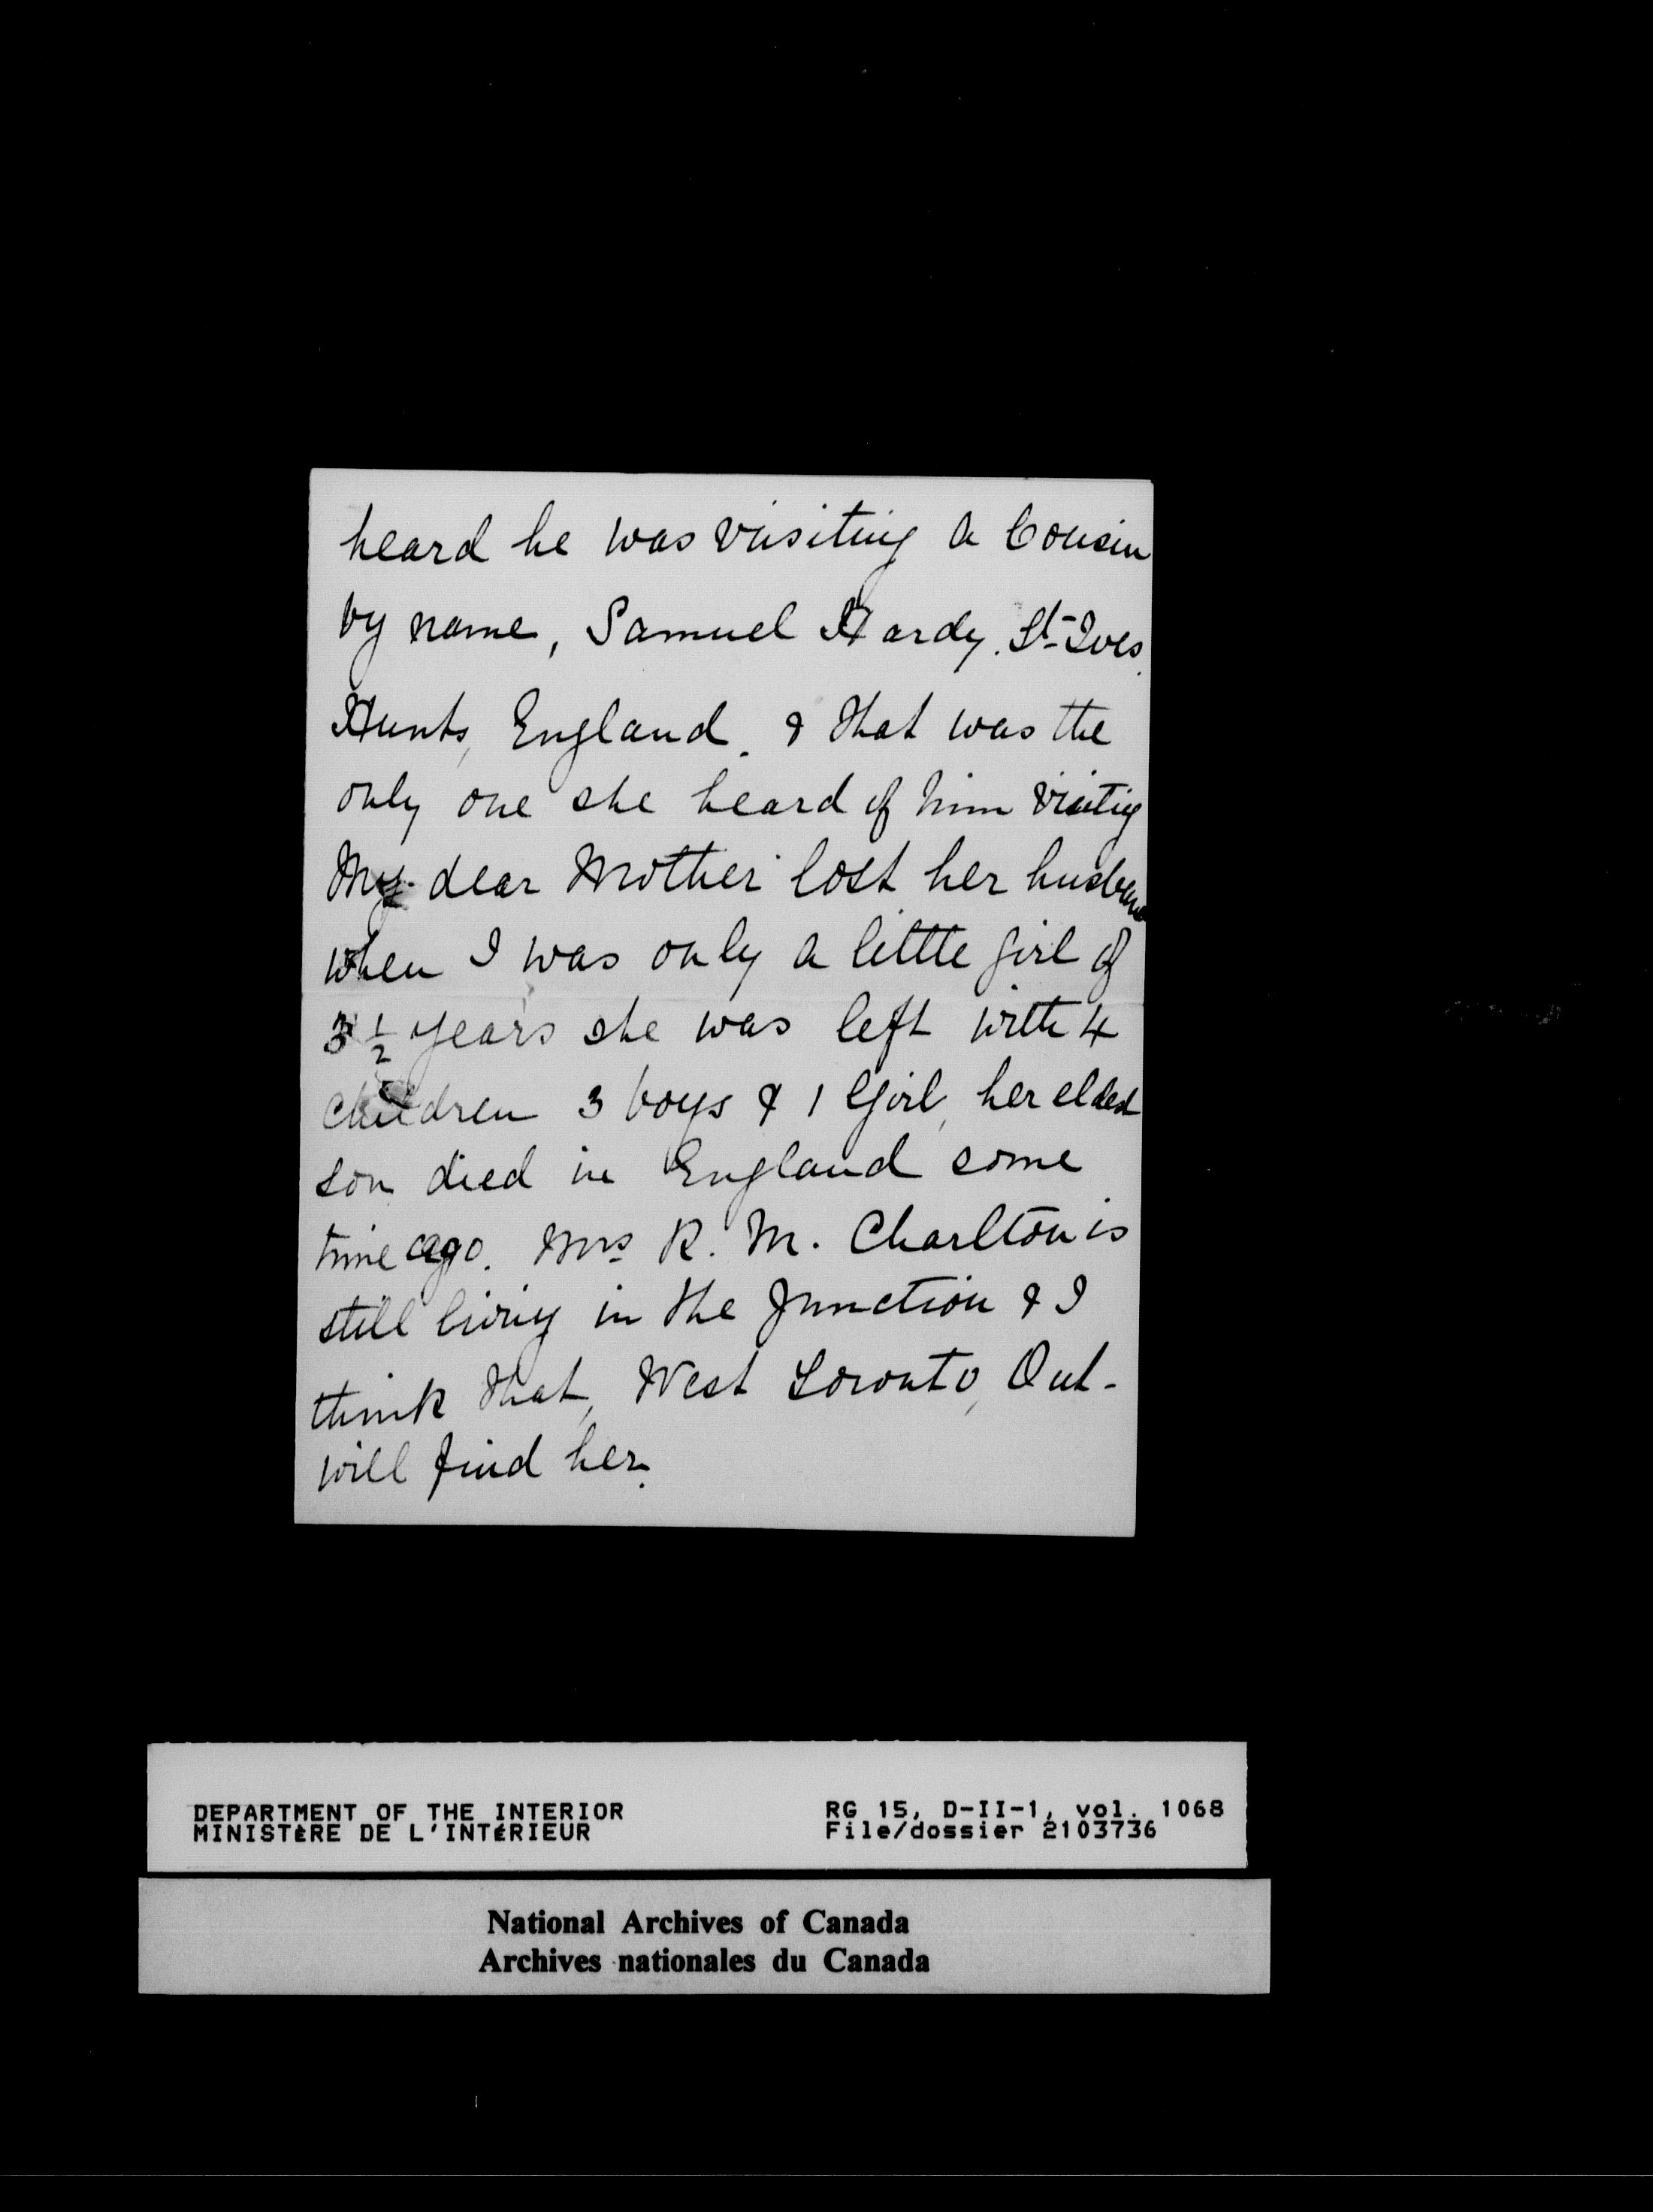 heard he was visiting a Cousin
by name, Samuel Hardy. St-Ives.
Hunts, England. & that was the
only one she heard of him visiting
My dear Mother lost her husband
when I was only a little girl of
3 1/2 years she was left with 4
children 3 boys & 1 Girl, her eldest
son died in England some
time ago. Mrs R. M. Charlton is
still living in the Junction & I
think that, West Toronto, Ont-
will find her.
DEPARTMENT OF THE INTERIOR
MINISTÈRE DE L'INTÉRIEUR
RG 15, D-II-1, vol. 1068
File/dossier 2103736
National Archives of Canada
Archives nationales du Canada